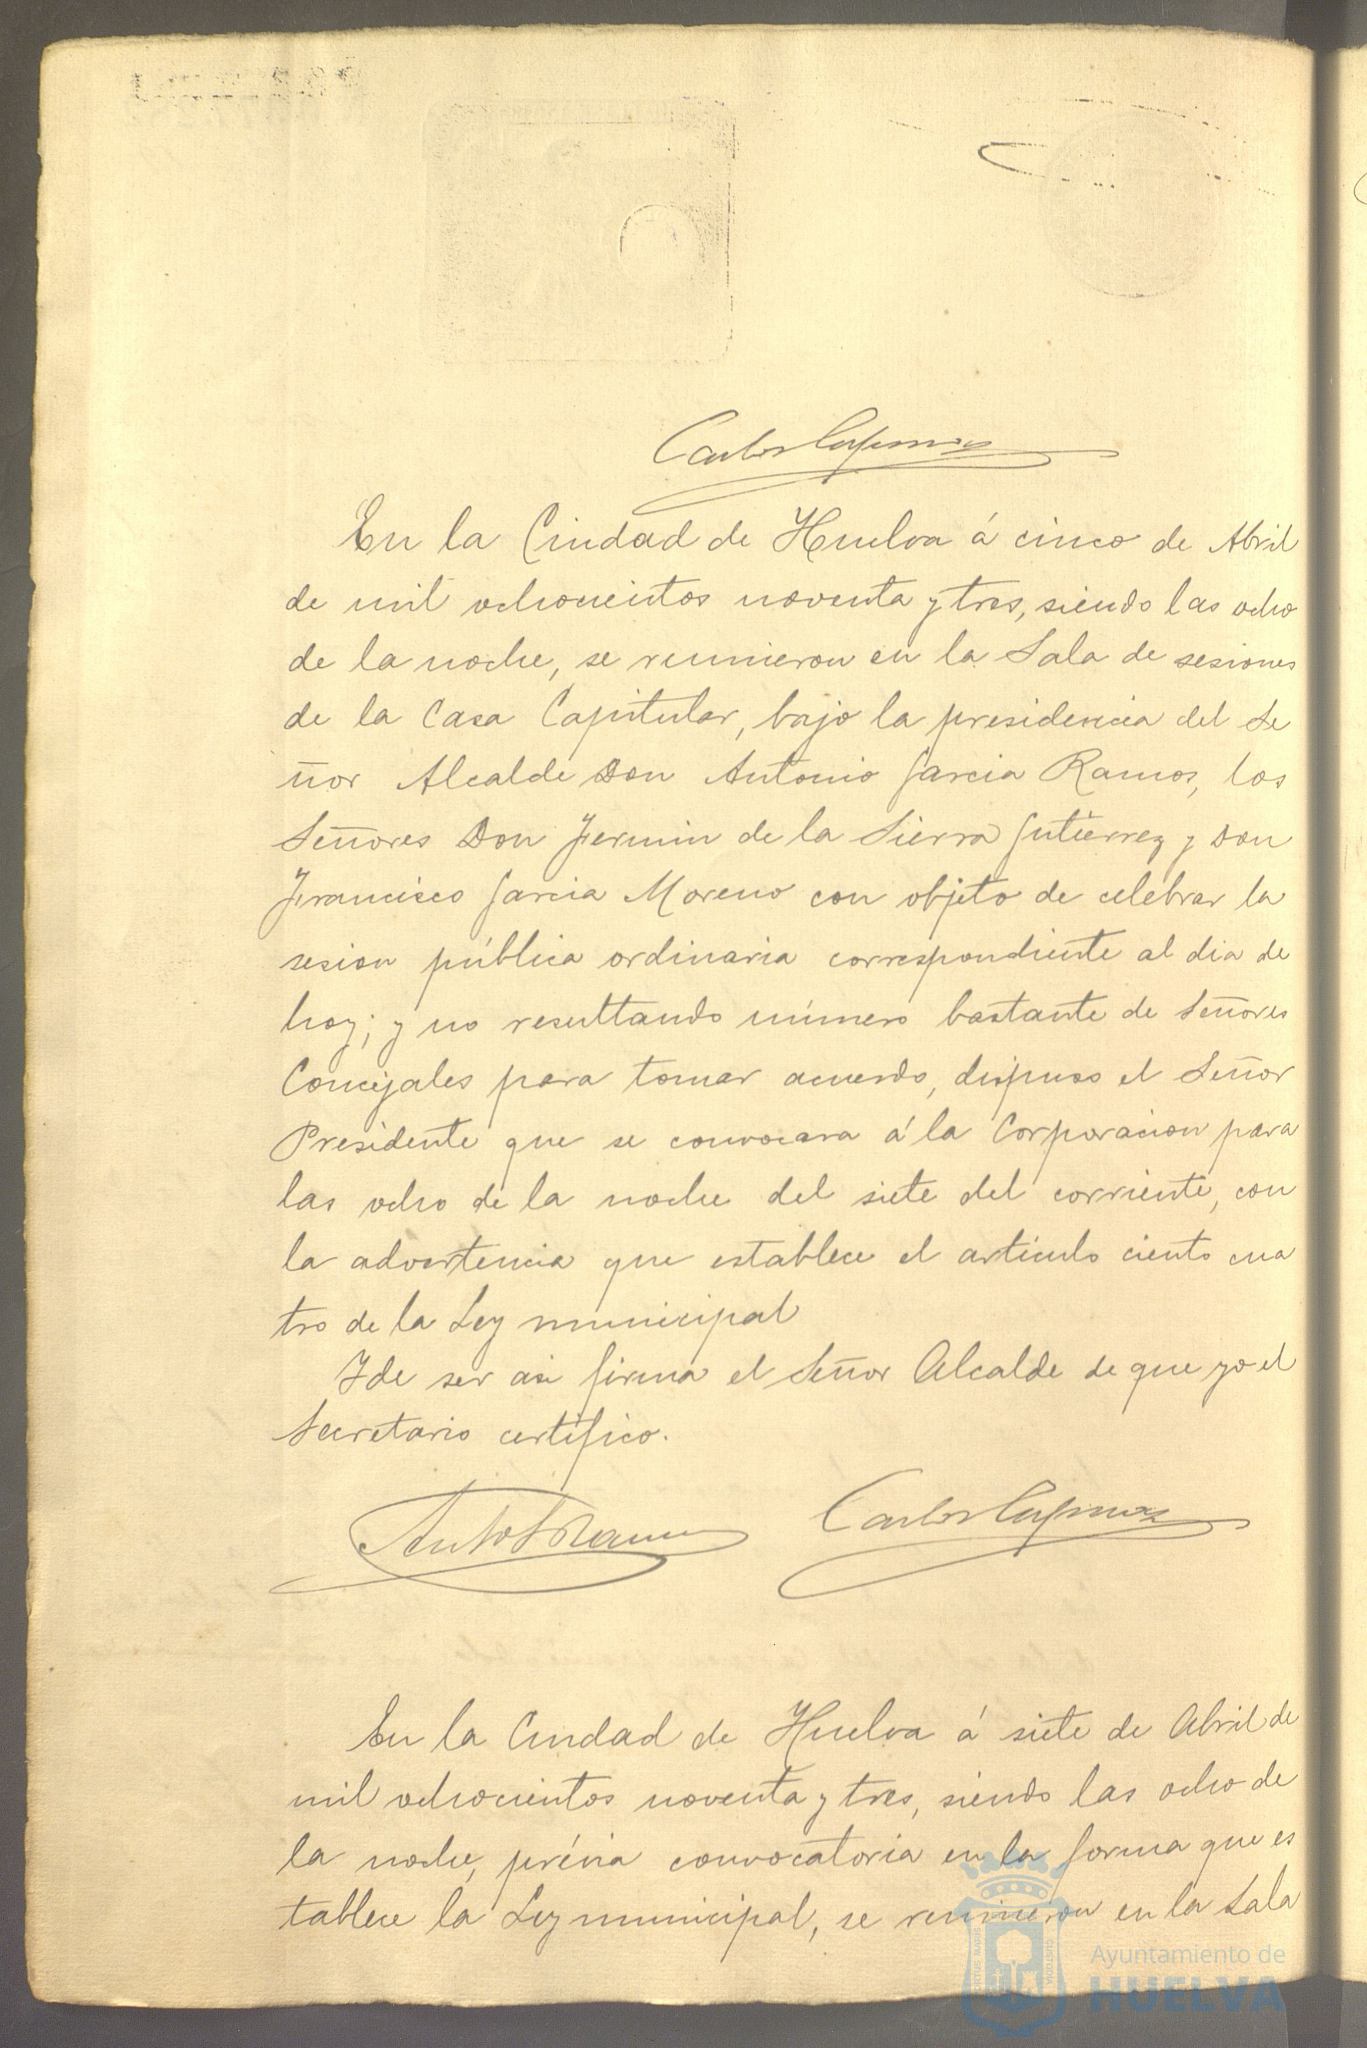 Carlos
En la Ciudad de Huelva á cinco de Abril
de mil ochocientos noventa y tres, siendo las ocho
de la noche, se reunieron en la Sala de sesiones
de la Casa Capitular, bajo la presidencia del Se
ñor Alcalde Don Antonio Garcia Ramos, los
Señores Don Fermin de la Sierra Gutierrez y Don
Francisco Garcia Moreno con objeto de celebrar la
sesion pública ordinaria correspondiente al dia de
hoy; y no resultando número bastante de Señores
Concejales para tomar acuerdo, dispuso el Señor
Presidente que se convocara á la Corporacion para
las ocho de la noche del siete del corriente, con
la advertencia que establece el artículo ciento cua
tro de la Ley municipal
Y de ser asi firma el Señor Alcalde de que yo el
Secretario certifico.
Ant.º G. Ramos Carlos
En la Ciudad de Huelva á siete de Abril de
mil ochocientos noventa y tres, siendo las ocho de
la noche, prévia convocatoria en la forma que es
tablece la Ley municipal, se reunieron en la Sala
Ayuntamiento de
HUELVA